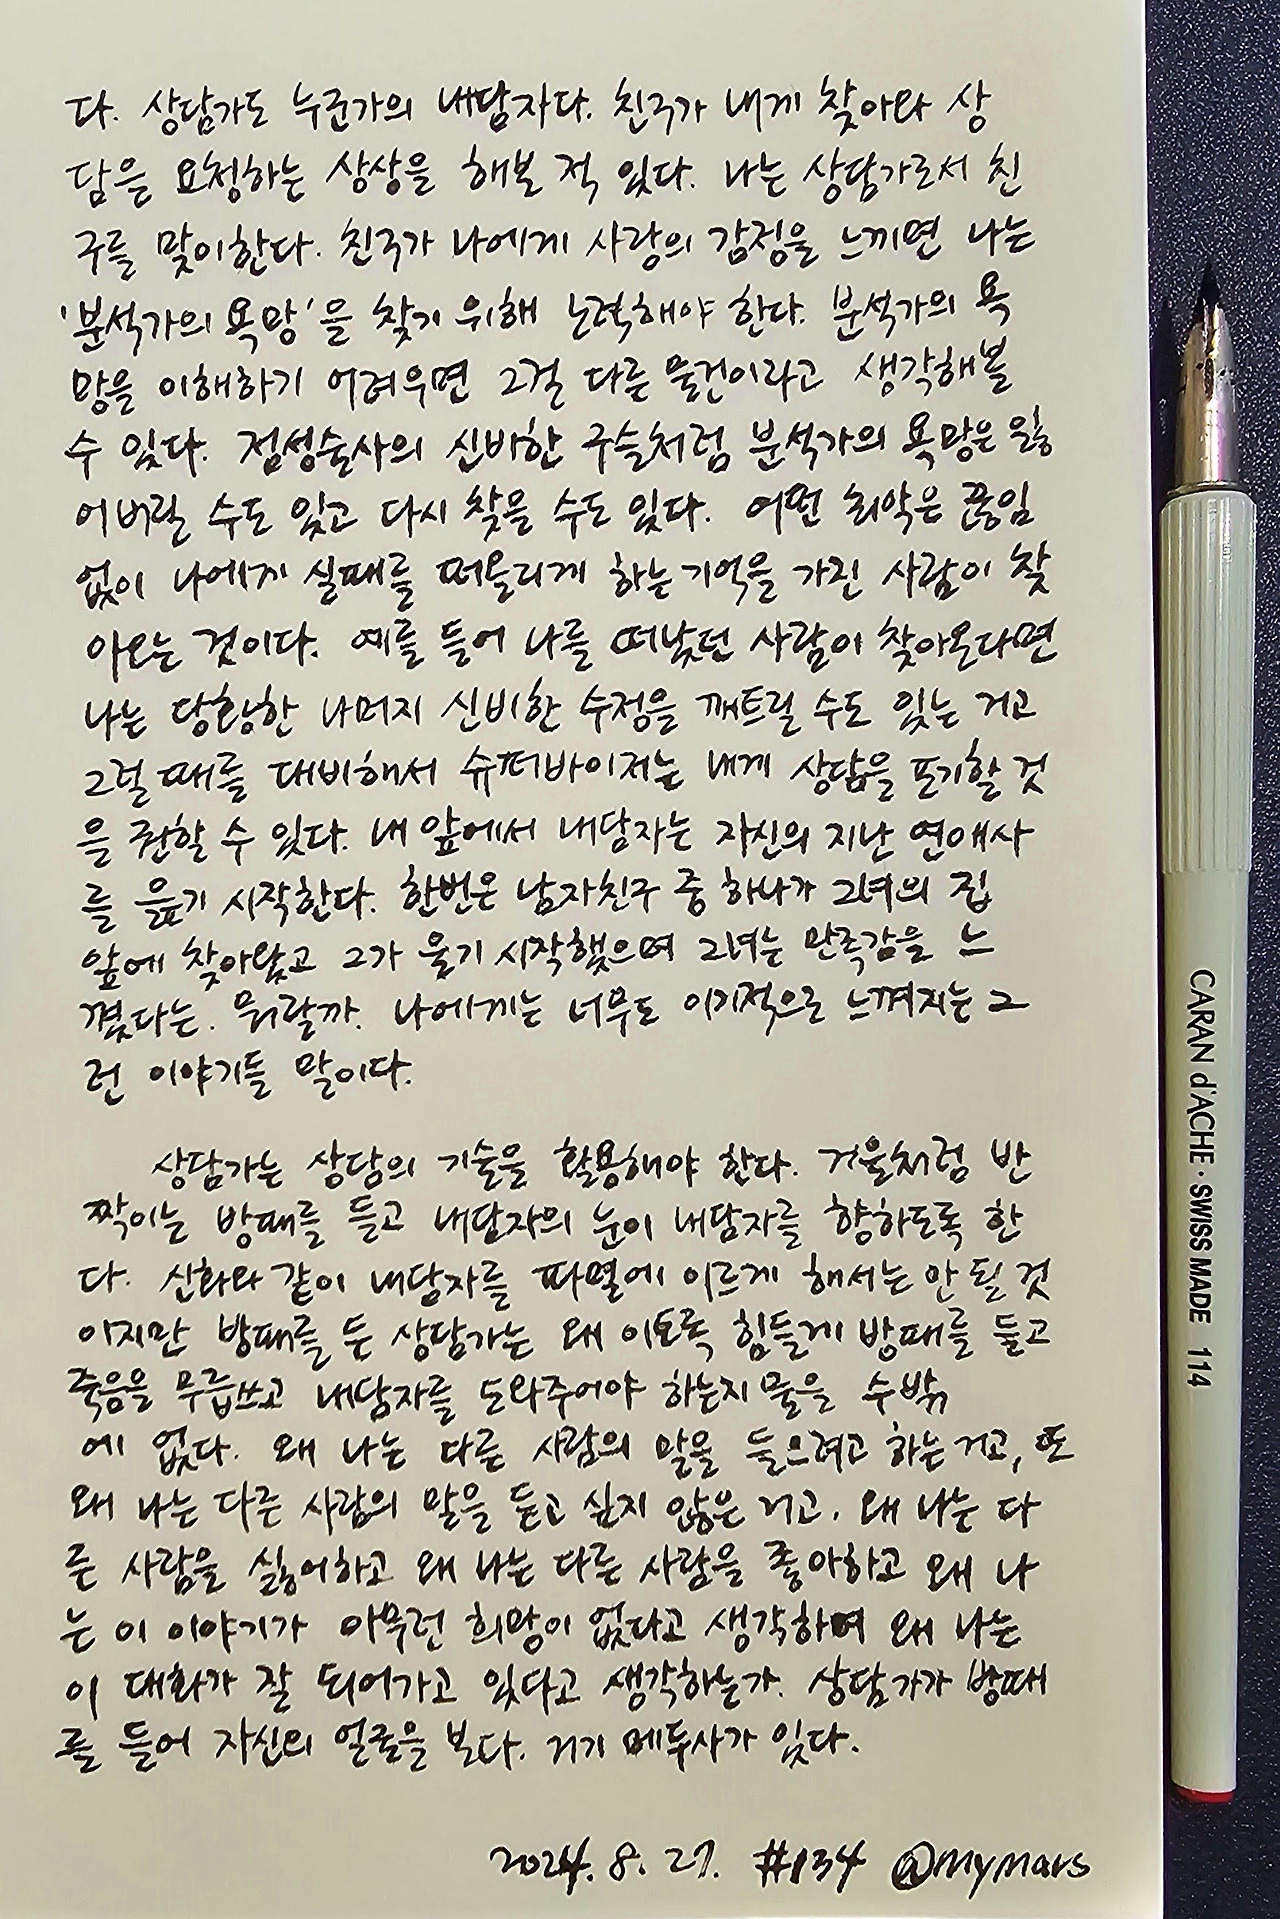 다. 상담가도 누군가의 내담자다. 친구가 내게 찾아와 상
담을 요청하는 상상을 해본 적 있다. 나는 상담가로서 친
구를 맞이한다. 친구가 나에게 사랑의 감정을 느끼면 나는
'분석가의 욕망'을 찾기 위해 노력해야 한다. 분석가의 욕
망을 이해하기 어려우면 그걸 다른 물건이라고 생각해볼
수 있다. 점성술사의 신비한 구슬처럼 분석가의 욕망은 잃
어버릴 수도 있고 다시 찾을 수도 있다. 어떤 최악은 끊임
없이 나에게 실패를 떠올리게 하는 기억을 가진 사람이 찾
아오는 것이다. 예를 들어 나를 떠났던 사람이 찾아온다면
나는 당황한 나머지 신비한 수정을 깨트릴 수도 있는 거고
그럴 때를 대비해서 슈퍼바이저는 내게 상담을 포기할 것
을 권할 수 있다. 내 앞에서 내담자는 자신의 지난 연애사
를 읊기 시작한다. 한번은 남자친구 중 하나가 그녀의 집
앞에 찾아왔고 그가 울기 시작했으며 그녀는 만족감을 느
꼈다는. 뭐랄까. 나에게는 너무도 이기적으로 느껴지는 그
런 이야기들 말이다.
상담가는 상담의 기술을 활용해야 한다. 거울처럼 반
짝이는 방패를 들고 내담자의 눈이 내담자를 향하도록 한
다. 신화와 같이 내담자를 파멸에 이르게 해서는 안 될 것
이지만 방패를 든 상담가는 왜 이토록 힘들게 방패를 들고
죽음을 무릅쓰고 내담자를 도와주어야 하는지 물을 수밖
에 없다. 왜 나는 다른 사람의 말을 들으려고 하는 거고, 또
왜 나는 다른 사람의 말을 듣고 싶지 않은 거고. 왜 나는 다
른 사람을 싫어하고 왜 나는 다른 사람을 좋아하고 왜 나
는 이 이야기가 아무런 희망이 없다고 생각하며 왜 나는
이 대화가 잘 되어가고 있다고 생각하는가. 상담가가 방패
를 들어 자신의 얼굴을 보다. 거기 메두사가 있다.
2024. 8. 27. #134 @mymars
CARAN d'ACHE · SWISS MADE 114